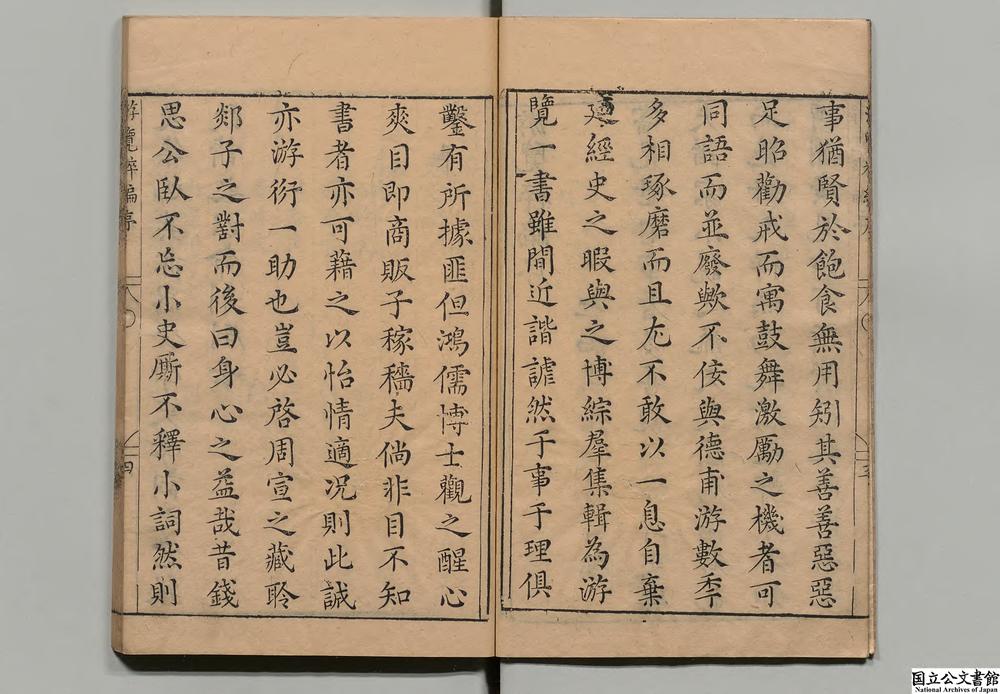 事猶賢於飽食無用矧其善善惡惡
足昭勸戒而寓鼓舞激勵之機者可
同語而並廢歟不佞與德甫游數秊
多相琢磨而且尢不敢以一息自棄
迺經史之暇與之博綜羣集輯為游
覽一書雖間近諧謔然于事于理俱
鑿有所據匪但鴻儒博士觀之醒心
爽目即商販子稼穡夫倘非目不知
書者亦可藉之以怡情適况則此誠
亦游衍一助也豈必啓周宣之藏聆
郯子之對而後曰身心之益哉昔錢
思公臥不忘小史厮不釋小詞然則
游覽粹編序
四
国立公文書館
National Archives of Japan